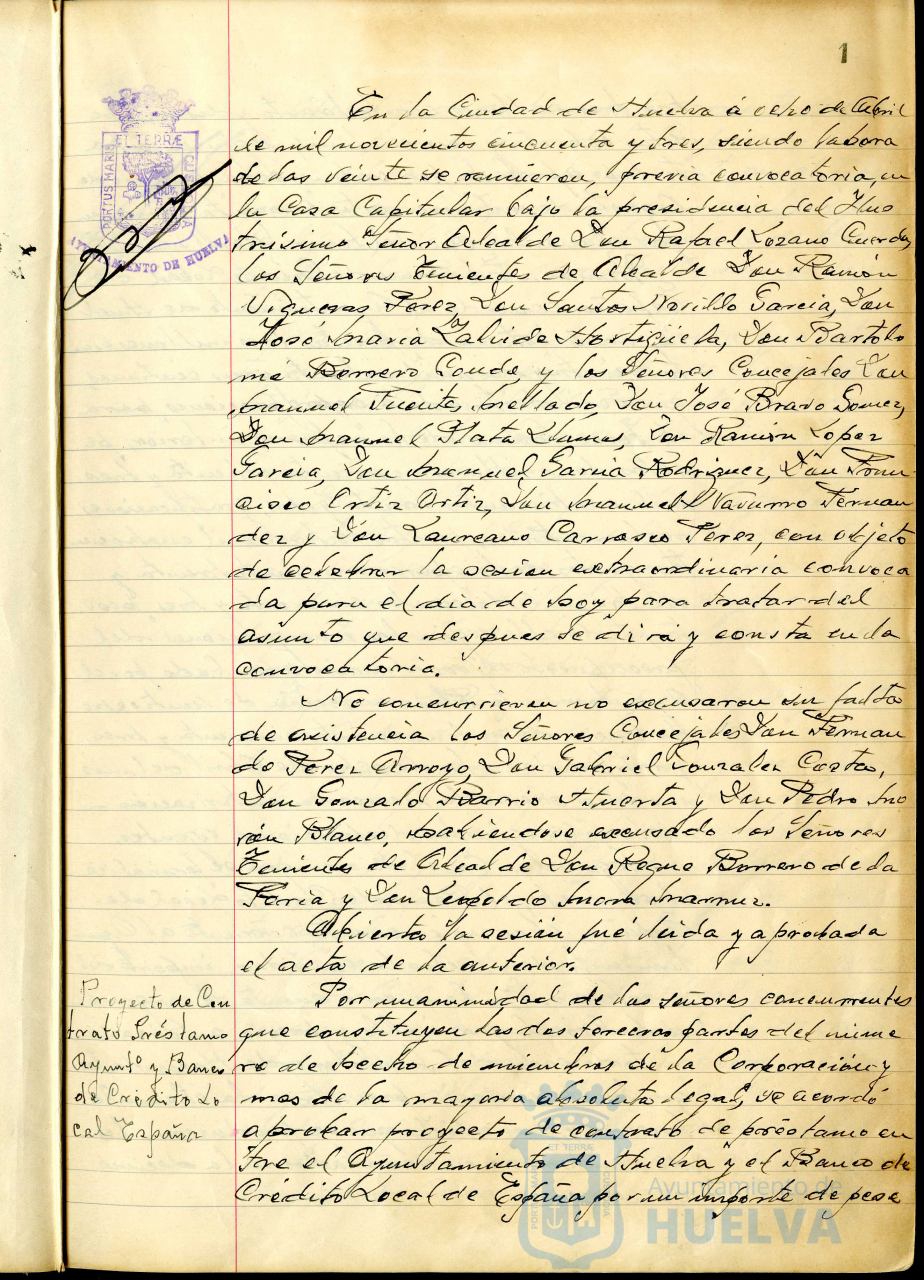 1
En la Ciudad de Huelva á ocho de Abril
de mil novecientos cincuenta y tres, siendo la hora
de las veinte se reunieron, previa convocatoria, en
la Casa Capitular bajo la presidencia del Ilus
trísimo Señor Alcalde Don Rafael Lozano Cuerda,
los Señores Tenientes de Alcalde Don Ramón
Vigueras Perez, Don Santos Novillo Garcia, Don
José Maria Zalvide Hortigüela, Don Bartolo
mé Borrero Conde, y los Señores Concejales Don
Manuel Fuentes Mellado, Don José Bravo Gomez,
Don Manuel Plata Llamas, Don Ramón Lopez
Garcia, Don Manuel Garcia Rodriguez, Don Fran
cisco Ortiz Ortiz, Don Manuel Navarro Fernan
dez y Don Laureano Carrasco Perez, con objeto
de celebrar la sesion extraordinaria convoca
da para el dia de hoy para tratar del
asunto que despues se dirá y consta en la
convocatoria.
No concurrieron no excusaron su falta
de asistencia los Señores Concejales Don Fernan
do Perez Arroyo, Don Gabriel Gonzalez Costa,
Don Gonzalo Barrio Huerta y Don Pedro Mo
rón Blanco, habiendose excusado los Señores
Tenientes de Alcalde Don Roque Borrero de la
Feria y Don Leopoldo Mora
Abierta la sesión fué leida y aprobada
el acta de la anterior.
Proyecto de Con
trato Préstamo
Ayuntº y Banco
de Crédito Lo
cal España
Por unanimidad de los señores concurrentes
que constituyen las dos terceras partes del núme
ro de hecho de miembros de la Corporación y
mas de la mayoria absoluta legal, se acordó
aprobar proyecto de contrato de préstamo en
tre el Ayuntamiento de Huelva y el Banco de
Crédito Local de España por un importe de pese
EL TERRÆ
PORTUS MARIS
AYUNTAMIENTO DE HUELVA
Ayuntamiento de
HUELVA